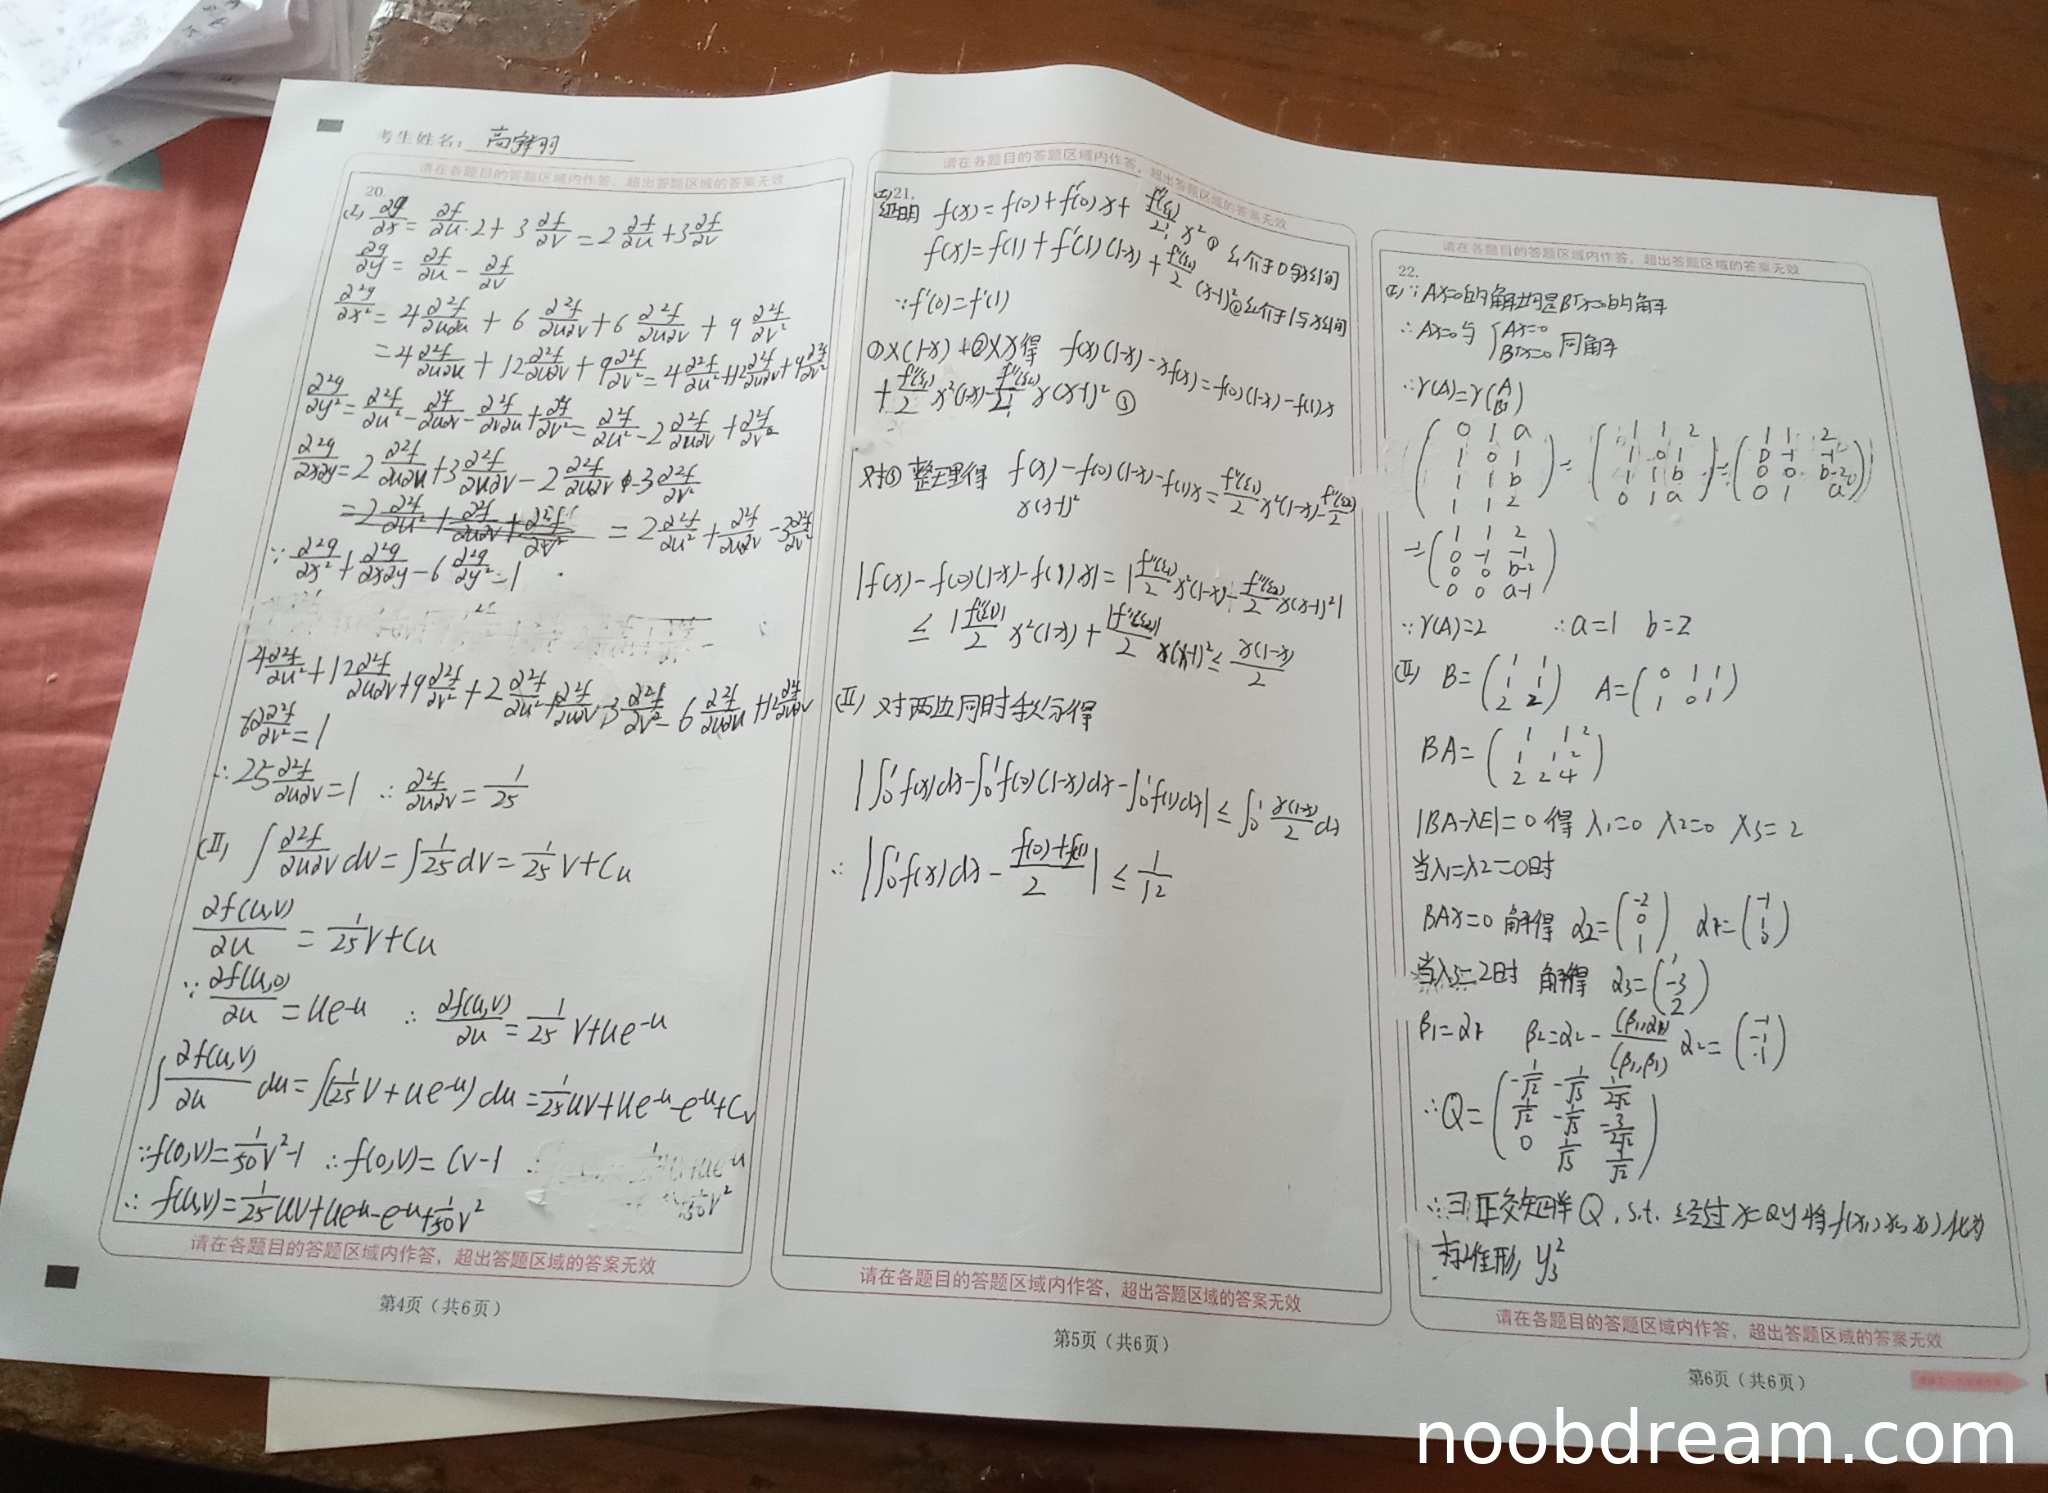 考生姓名：
请在各题目的答题区域内作答，超出答题区域的答案无效
20.
(I) ∂g/∂x = ∂f/∂u·2 + 3 ∂f/∂v = 2 ∂f/∂u + 3 ∂f/∂v
∂g/∂y = ∂f/∂u - ∂f/∂v
∂²g/∂x² = 4 ∂²f/∂u∂u + 6 ∂²f/∂u∂v + 6 ∂²f/∂u∂v + 9 ∂²f/∂v²
= 4 ∂²f/∂u∂u + 12 ∂²f/∂u∂v + 9 ∂²f/∂v² = 4 ∂²f/∂u² + 12 ∂²f/∂u∂v + 9 ∂²f/∂v²
∂²g/∂y² = ∂²f/∂u² - ∂²f/∂u∂v - ∂²f/∂v∂u + ∂²f/∂v² = ∂²f/∂u² - 2 ∂²f/∂u∂v + ∂²f/∂v²
∂²g/∂x∂y = 2 ∂²f/∂u∂u + 3 ∂²f/∂u∂v - 2 ∂²f/∂u∂v - 3 ∂²f/∂v²
= 2 ∂²f/∂u² + ∂²f/∂u∂v - 3 ∂²f/∂v²
∵ ∂²g/∂x² + ∂²g/∂x∂y - 6 ∂²g/∂y² = 1
4 ∂²f/∂u² + 12 ∂²f/∂u∂v + 9 ∂²f/∂v² + 2 ∂²f/∂u² + ∂²f/∂u∂v - 3 ∂²f/∂v² - 6 ∂²f/∂u∂u + 12 ∂²f/∂u∂v
∂²f/∂v² = 1
∴ 25 ∂²f/∂u∂v = 1 ∴ ∂²f/∂u∂v = 1/25
(II) ∫ ∂²f/∂u∂v dv = ∫ 1/25 dv = 1/25 v + Cu
∂f(u,v)/∂u = 1/25 v + Cu
∵ ∂f(u,0)/∂u = ue^-u ∴ ∂f(u,v)/∂u = 1/25 v + ue^-u
∫ ∂f(u,v)/∂u du = ∫(1/25 v + ue^-u) du = 1/25 uv + ue^-u - e^-u + Cv
∵ f(0,v) = 1/50 v² - 1 ∴ f(0,v) = Cv - 1
∴ f(u,v) = 1/25 uv + ue^-u - e^-u + 1/50 v²
请在各题目的答题区域内作答，超出答题区域的答案无效
第4页（共6页）
请在各题目的答题区域内作答，超出答题区域的答案无效
(I) 21.
证明 f(x) = f(0) + f'(0)x + f''(ξ₁)/2! x² ① ξ₁介于0与x间
f(x) = f(1) + f'(1)(1-x) + f''(ξ₂)/2 (x-1)² ② ξ₂介于1与x间
∵ f'(0) = f'(1)
①×(1-x) + ②×x得 f(x)(1-x) - xf(x) = f(0)(1-x) - f(1)x
+ f''(ξ₁)/2 x²(1-x) - f''(ξ₂)/2! x(x-1)² ③
对③整理得 f(x) - f(0)(1-x) - f(1)x = f''(ξ₁)/2 x²(1-x) - f''(ξ₂)/2
x(x-1)²
|f(x) - f(0)(1-x) - f(1)x| = |f''(ξ₁)/2 x²(1-x) - f''(ξ₂)/2 x(x-1)²|
≤ |f''(ξ₁)|/2 x²(1-x) + |f''(ξ₂)|/2 x(x-1)² ≤ x(1-x)/2
(II) 对两边同时积分得
|∫₀¹f(x)dx - ∫₀¹f(0)(1-x)dx - ∫₀¹f(1)dx| ≤ ∫₀¹ x(1-x)/2 dx
∴ |∫₀¹f(x)dx - (f(0)+f(1))/2| ≤ 1/12
请在各题目的答题区域内作答，超出答题区域的答案无效
第5页（共6页）
请在各题目的答题区域内作答，超出答题区域的答案无效
22.
(I) ∵ Ax=0的解均是Bᵀx=0的解
∴ Ax=0与 { Ax=0 Bᵀx=0 同解
∴ r(A) = r(A Bᵀ)
(0 1 a
1 0 1
1 1 b
1 1 2) → (1 1 2
1 0 1
1 1 b
0 1 a) → (1 1 2
0 -1 -1
0 0 b-2
0 1 a)
→ (1 1 2
0 -1 -1
0 0 b-2
0 0 a-1)
∵ r(A)=2 ∴ a=1 b=2
(II) B = (1 1
1 1
2 2) A = (0 1 1
1 0 1)
BA = (1 1 2
1 1 2
2 2 4)
|BA-λE|=0 得 λ1=0 λ2=0 λ3=2
当λ1=λ2=0时
BAx=0 解得 α2=(-2
0
1) α1=(-1
1
0)
当λ3=2时 解得 α3=(1
-3
2)
β1=α1 β2=α2 - (β1,α2)/(β1,β1) α2 = (-1
-1
-1)
∴ Q = (-1/√2 -1/√3 1/2√2
1/√2 -1/√3 -3/2√2
0 1/√3 1/√2)
∴ ∃正交矩阵Q, s.t. 经过x=Qy将f(x1,x2,x3)化为
标准形, y₃²
请在各题目的答题区域内作答，超出答题区域的答案无效
第6页（共6页）
noobdream.com